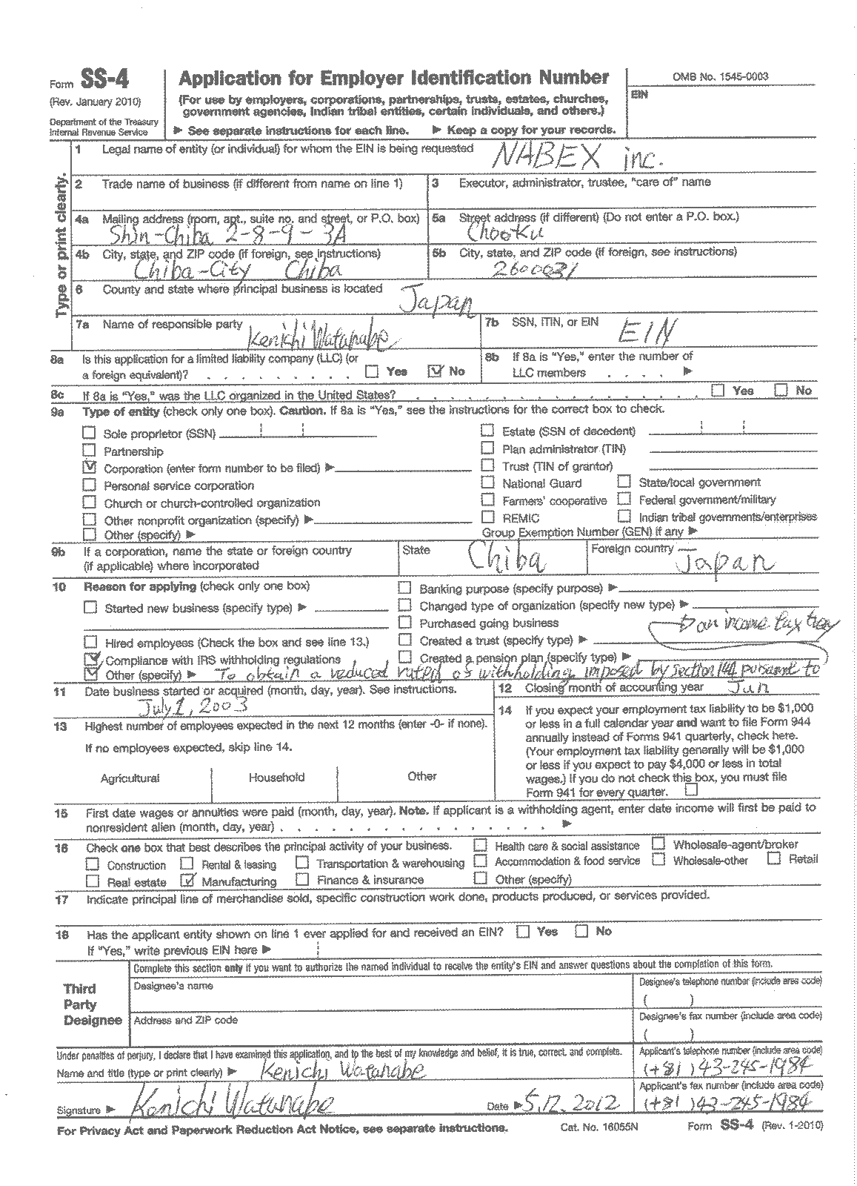 Form SS-4
(Rev. January 2010)
Department of the Treasury
Internal Revenue Service
Application for Employer Identification Number
(For use by employers, corporations, partnerships, trusts, estates, churches,
government agencies, Indian tribal entities, certain individuals, and others.)
▶ See separate instructions for each line. ▶ Keep a copy for your records.
OMB No. 1545-0003
EIN
Type or print clearly.
1 Legal name of entity (or individual) for whom the EIN is being requested NABEX inc.
2 Trade name of business (if different from name on line 1)
3 Executor, administrator, trustee, "care of" name
4a Mailing address (room, apt., suite no. and street, or P.O. box)
Shin-Chiba 2-8-9-3A
5a Street address (if different) (Do not enter a P.O. box.)
Chooku
4b City, state, and ZIP code (if foreign, see instructions)
Chiba-City Chiba
5b City, state, and ZIP code (if foreign, see instructions)
2600031
6 County and state where principal business is located
Japan
7a Name of responsible party
Kenichi Watanabe
7b SSN, ITIN, or EIN EIN
8a Is this application for a limited liability company (LLC) (or
a foreign equivalent)? . . . . . . . . Yes No
8b If 8a is "Yes," enter the number of
LLC members . . . . ▶
8c If 8a is "Yes," was the LLC organized in the United States? . . . . . . . . . . Yes No
9a Type of entity (check only one box). Caution. If 8a is "Yes," see the instructions for the correct box to check.
Sole proprietor (SSN)
Partnership
Corporation (enter form number to be filed) ▶
Personal service corporation
Church or church-controlled organization
Other nonprofit organization (specify) ▶
Other (specify) ▶
Estate (SSN of decedent)
Plan administrator (TIN)
Trust (TIN of grantor)
National Guard State/local government
Farmers' cooperative Federal government/military
REMIC Indian tribal governments/enterprises
Group Exemption Number (GEN) if any ▶
9b If a corporation, name the state or foreign country
(if applicable) where incorporated
State Chiba
Foreign country Japan
10 Reason for applying (check only one box)
Started new business (specify type) ▶
Hired employees (Check the box and see line 13.)
Compliance with IRS withholding regulations
Banking purpose (specify purpose) ▶
Changed type of organization (specify new type) ▶
Purchased going business
Created a trust (specify type) ▶
Created a pension plan (specify type) ▶
an income tax
Other (specify) ▶ To obtain a reduced of withholding imposed by section pursuant to
11 Date business started or acquired (month, day, year). See instructions.
July 1, 2003
12 Closing month of accounting year Jun
13 Highest number of employees expected in the next 12 months (enter -0- if none).
If no employees expected, skip line 14.
Agricultural Household Other
14 If you expect your employment tax liability to be $1,000
or less in a full calendar year and want to file Form 944
annually instead of Forms 941 quarterly, check here.
(Your employment tax liability generally will be $1,000
or less if you expect to pay $4,000 or less in total
wages.) If you do not check this box, you must file
Form 941 for every quarter.
15 First date wages or annuities were paid (month, day, year). Note. If applicant is a withholding agent, enter date income will first be paid to
nonresident alien (month, day, year) . . . . . . . . . . . . . . . ▶
16 Check one box that best describes the principal activity of your business.
Construction Rental & leasing Transportation & warehousing
Real estate Manufacturing Finance & insurance
Health care & social assistance Wholesale-agent/broker
Accommodation & food service Wholesale-other Retail
Other (specify)
17 Indicate principal line of merchandise sold, specific construction work done, products produced, or services provided.
18 Has the applicant entity shown on line 1 ever applied for and received an EIN? Yes No
If "Yes," write previous EIN here ▶
Third
Party
Designee
Complete this section only if you want to authorize the named individual to receive the entity's EIN and answer questions about the completion of this form.
Designee's name
Designee's telephone number (include area code)
( )
Address and ZIP code
Designee's fax number (include area code)
( )
Under penalties of perjury, I declare that I have examined this application, and to the best of my knowledge and belief, it is true, correct, and complete.
Name and title (type or print clearly) ▶ Kenichi Watanabe
Applicant's telephone number (include area code)
(+81) 43-245-1984
Signature ▶ Kenichi Watanabe Date ▶ 5, 17, 2012
Applicant's fax number (include area code)
(+81) 43-245-1984
For Privacy Act and Paperwork Reduction Act Notice, see separate instructions. Cat. No. 16055N Form SS-4 (Rev. 1-2010)